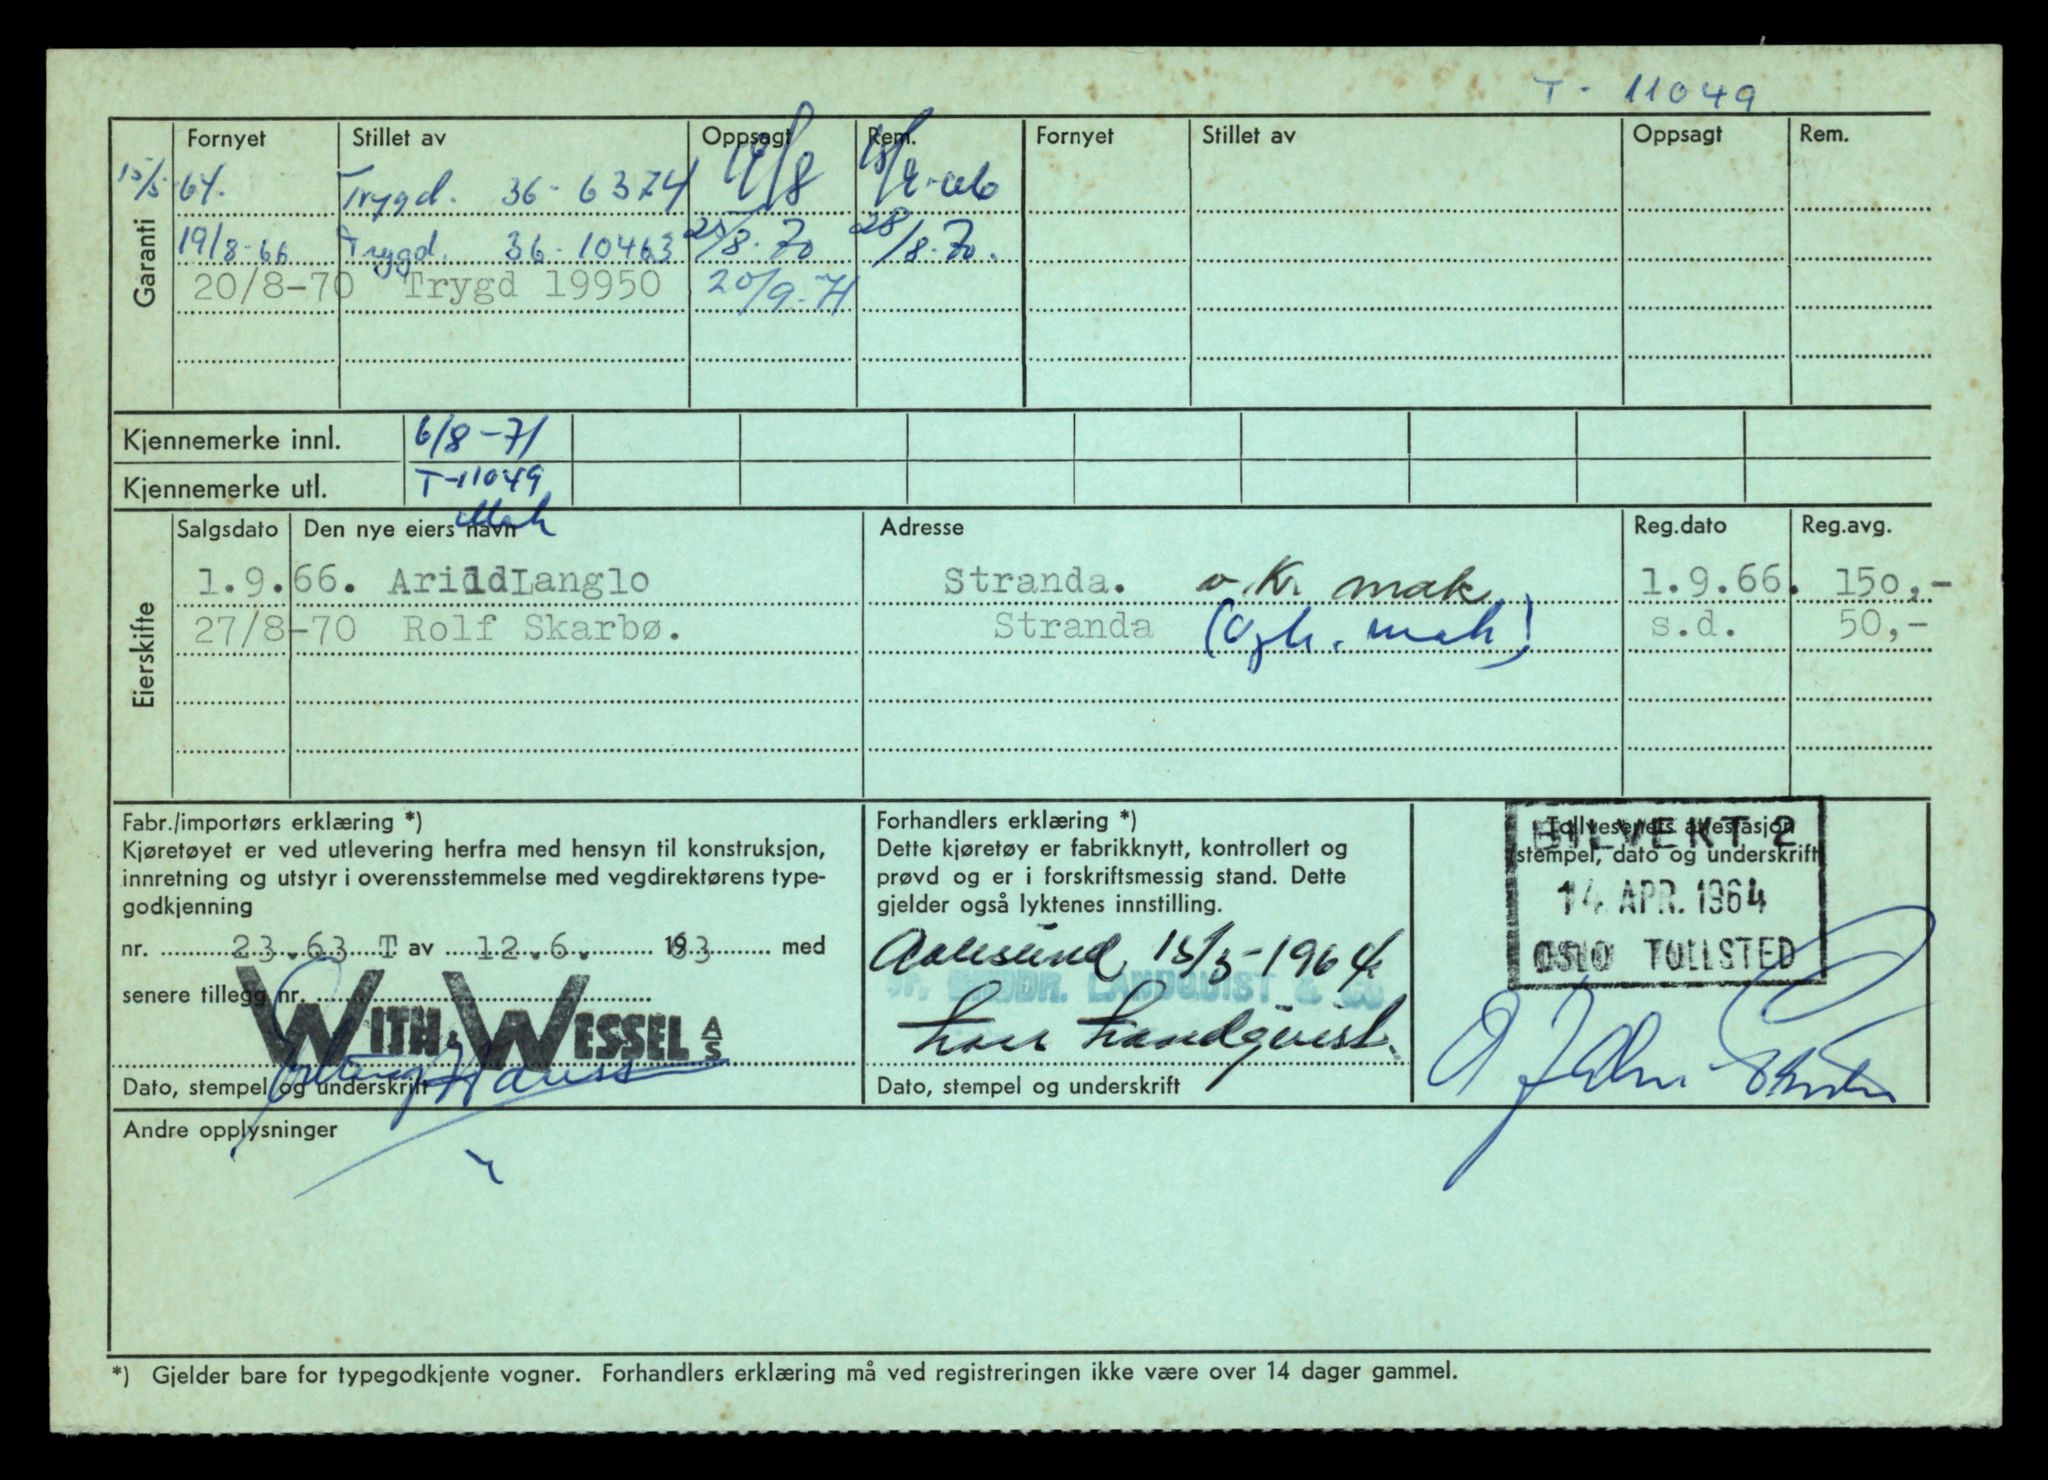 T - 11049
Garanti
Fornyet Stillet av Oppsagt Rem. Fornyet Stillet av Oppsagt Rem.
15/5-64. Trygd. 36-6374 19/8
19/8-66 Trygd. 36-10463 25/8-70 28/8-70.
20/8-70 Trygd 19950 20/9-71
Kjennemerke innl. 6/8-71
Kjennemerke utl. T-11049
Mak
Eierskifte
Salgsdato Den nye eiers navn Adresse Reg.dato Reg.avg.
1.9.66. Arild Langlo Stranda. v.Kr. mak 1.9.66. 150,-
27/8-70 Rolf Skarbø. Stranda s.d. 50,-
Fabr./importørs erklæring *)
Kjøretøyet er ved utlevering herfra med hensyn til konstruksjon,
innretning og utstyr i overensstemmelse med vegdirektørens type-
godkjenning
nr. 23.63 T av 12.6. 1963 med
senere tillegg nr.
WITH & WESSEL A/S
Dato, stempel og underskrift
Forhandlers erklæring *)
Dette kjøretøy er fabrikknytt, kontrollert og
prøvd og er i forskriftsmessig stand. Dette
gjelder også lyktenes innstilling.
Aalesund, 15/5-1964
BRØDR. LANDQUIST & CO
Landqvist
Dato, stempel og underskrift
Tollvesenets attestasjon
stempel, dato og underskrift
BILVEKT 2
14 APR. 1964
OSLO TOLLSTED
Andre opplysninger
*) Gjelder bare for typegodkjente vogner. Forhandlers erklæring må ved registreringen ikke være over 14 dager gammel.